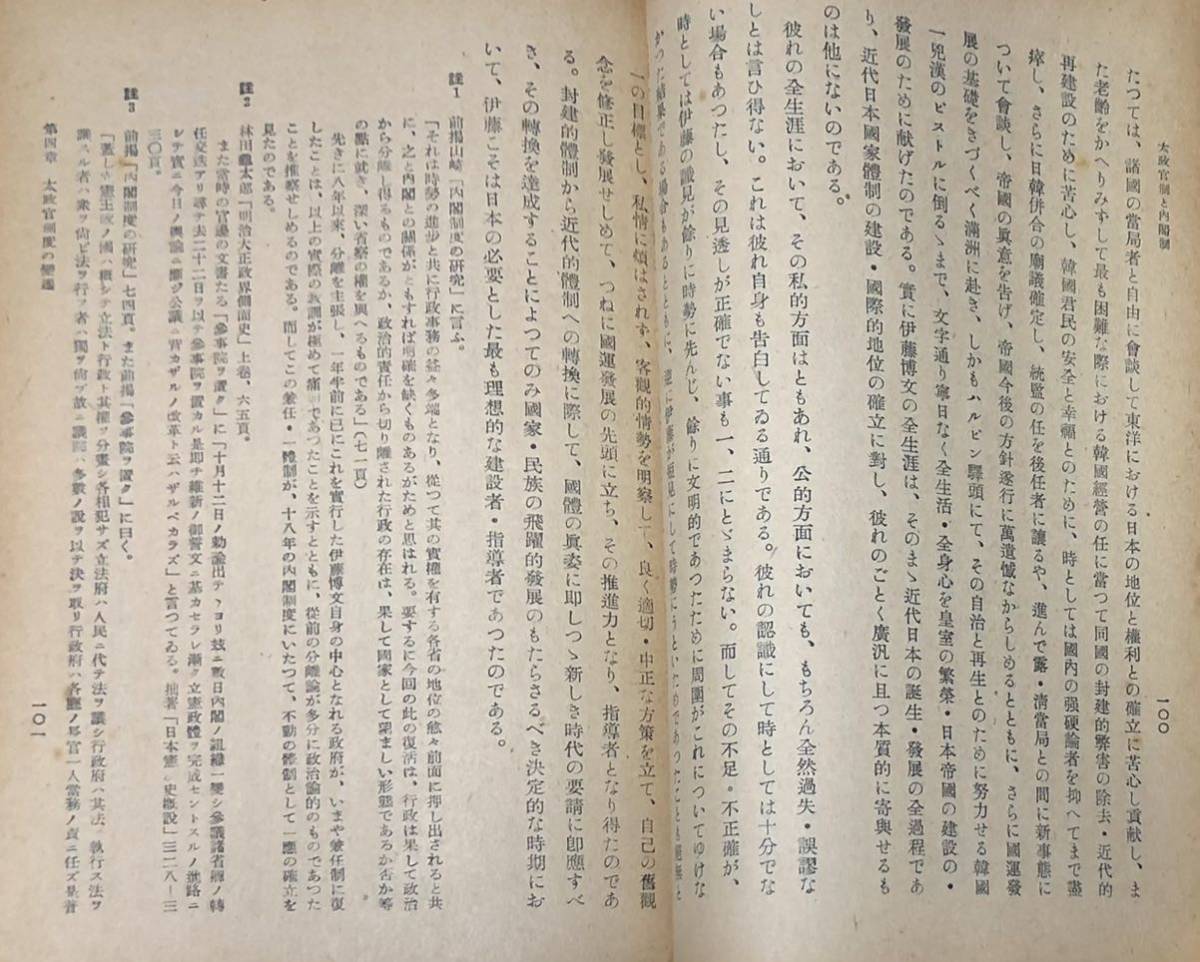 太政官制と內閣制
一〇〇
たつては、諸國の當局者と自由に會談して東洋における日本の地位と權利との確立に苦心し貢獻し、ま
た老齡をかへりみずして最も困難な際における韓國經營の任に當つて同國の封建的弊害の除去・近代的
再建設のために苦心し、韓國君民の安全と幸福とのために、時としては國內の强硬論者を抑へてまで盡
瘁し、さらに日韓併合の廟議確定し、統監の任を後任者に讓るや、進んで露・淸當局との間に新事態に
ついて會談し、帝國の眞意を告げ、帝國今後の方針遂行に萬遺憾なからしめるとともに、さらに國運發
展の基礎をきづくべく滿洲に赴き、しかもハルビン驛頭にて、その自治と再生とのために努力せる韓國
一兇漢のピストルに倒るゝまで、文字通り寧日なく全生活・全身心を皇室の繁榮・日本帝國の建設の・
發展のために献げたのである。實に伊藤博文の全生涯は、そのまゝ近代日本の誕生・發展の全過程であ
り、近代日本國家體制の建設・國際的地位の確立に對し、彼れのごとく廣汎に且つ本質的に寄與せるも
のは他にないのである。
彼れの全生涯において、その私的方面はともあれ、公的方面においても、もちろん全然過失・誤謬な
しとは言ひ得ない。これは彼れ自身も告白してゐる通りである。彼れの認識にして時としては十分でな
い場合もあつたし、その見透しが正確でない事も一、二にとゞまらない。而してその不足・不正確が、
時としては伊藤の識見が餘りに時勢に先んじ、餘りに文明的であつたために周圍がこれについてゆけな
かつた結果である場合もあるとともに、逆に伊藤が
一の目標とし、私情に煩はされず、客觀的情勢を明察して、良く適切・中正な方策を立て、自己の舊觀
念を修正し發展せしめて、つねに國運發展の先頭に立ち、その推進力となり、指導者となり得たのであ
る。封建的體制から近代的體制への轉換に際して、國體の眞姿に卽しつゝ新しき時代の要請に卽應すべ
き、その轉換を達成することによつてのみ國家・民族の飛躍的發展のもたらさるべき決定的な時期にお
いて、伊藤こそは日本の必要とした最も理想的な建設者・指導者であつたのである。
註1 前揭山崎「內閣制度の硏究」に言ふ。
「それは時勢の進步と共に行政事務の益々多端となり、從つて其の實權を有する各省の地位の愈々前面に押し出されると共
に、之と內閣との關係がともすれば明確を缺くものあるがためと思はれる。要するに今囘の此の復活は、行政は果して政治
から分離し得るものであるか、政治的責任から切り離された行政の存在は、果して國家として望ましい形態であるか否か等
の點に就き、深い省察の機を與へるものである」(七一頁)
先きに八年以來、分離を主張し、一年半前に已にこれを實行した伊藤博文自身の中心となれる政府が、いまや兼任制に復
したことは、以上の實際の敎訓が極めて痛切であつたことを示すとともに、從前の分離論が多分に政治論的のものであつた
ことを推察せしめるのである。而してこの兼任・一體制が、十八年の內閣制度にいたつて、不動の體制として一應の確立を
見たのである。
註2 林田龜太郎「明治大正政界側面史」上卷、六五頁。
また當時の官邊の文書たる「參事院ヲ置ク」に「十月十二日ノ勅諭出テヽヨリ玆ニ數日內閣ノ組織一變シ參議諸省卿ノ轉
任交迭アリ尋テ去二十二日ヲ以テ參事院ヲ置カル是卽チ維新ノ御誓文ニ基カセラレ漸ク立憲政體ヲ完成セントスルノ進路ニ
シテ實ニ今日ノ輿論ニ應ジ公議ニ背カザルノ改革ト云ハザルベカラズ」と言つてゐる。拙著「日本憲政史槪說」三二八―三
三〇頁。
註3 前揭「內閣制度の硏究」七四頁。また前揭「參事院ヲ置ク」に曰く。
「蓋し憲主政ノ國ハ槪シテ立法ト行政ト其權ヲ分畫シ各相犯サズ立法府ハ人民ニ代テ法ヲ議シ行政府ハ其法ヲ執行ス法ヲ
議スル者ハ衆ヲ尙ビ法ヲ行フ者ハ獨ヲ尙ブ故ニ議院ハ多數ノ說ヲ以テ決ヲ取リ行政府ハ各廳ノ專官一人當務ノ責ニ任ズ是普
第四章 太政官制度の變遷
一〇一